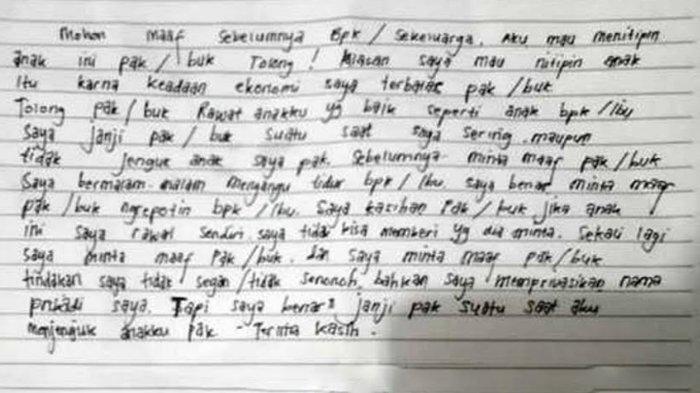 Mohon maaf sebelumnya Bpk / sekeluarga. Aku mau menitipin
anak ini pak / buk Tolong ! Alasan saya mau nitipin anak
itu karna keadaan ekonomi saya terbatas pak / buk
Tolong pak / buk Rawat anakku yg baik seperti anak bpk / Ibu
saya janji pak / buk suatu saat saya sering maupun
tidak jenguk anak saya pak. sebelumnya minta maaf pak / buk
saya bermalam-malam mengangu tidur bpk / Ibu. saya benar minta maaf
pak / buk ngrepotin bpk / Ibu. Saya kasihan Pak / buk jika anak
ini saya rawat sendiri. saya tidak bisa memberi yg dia minta. Sekali lagi
saya minta maaf Pak / buk. dan saya minta maaf pak / buk
tindakan saya tidak segan / tidak senonoh, bahkan saya memprivasikan nama
pribadi saya. Tapi saya benar² janji pak suatu saat aku
menjenguk anakku pak - Terima kasih.